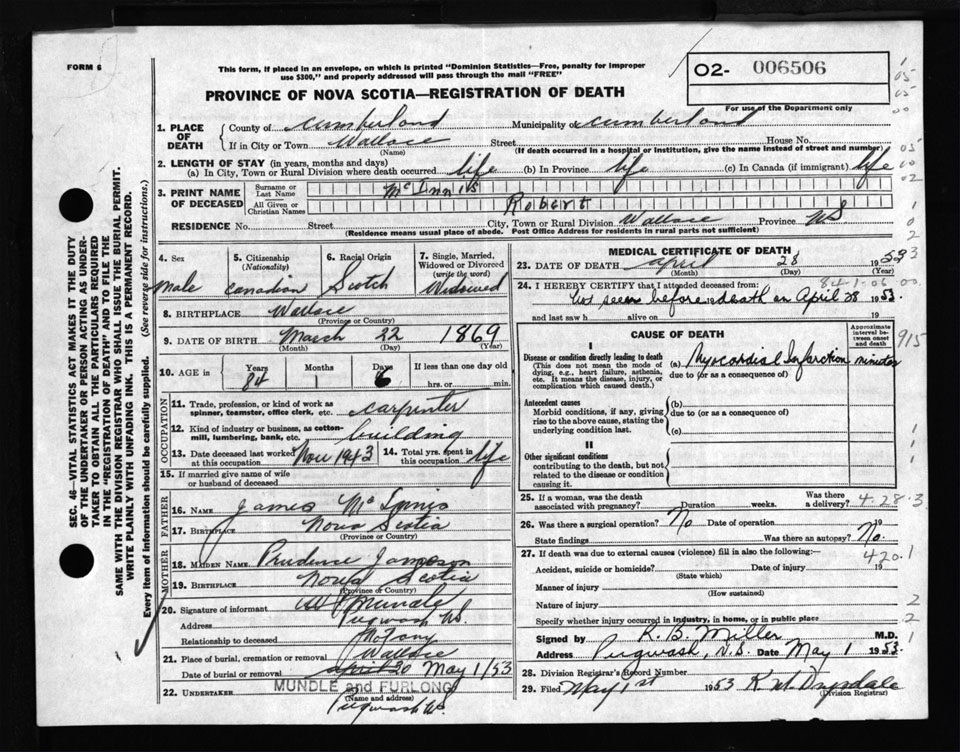 FORM 6
This form, if placed in an envelope, on which is printed "Dominion Statistics—Free, penalty for improper
use $300," and properly addressed will pass through the mail "FREE"
02- 006506
For use of the Department only
PROVINCE OF NOVA SCOTIA—REGISTRATION OF DEATH
1. PLACE OF DEATH
County of Cumberland Municipality of Cumberland
If in City or Town Wallace Street House No.
(Name) (If death occurred in a hospital or institution, give the name instead of street and number)
2. LENGTH OF STAY (in years, months and days)
(a) In City, Town or Rural Division where death occurred life (b) In Province life (c) In Canada (if immigrant) life
3. PRINT NAME OF DECEASED
Surname or Last Name McInnis
All Given or Christian Names Robert
RESIDENCE No. Street City, Town or Rural Division Wallace Province NS
(Residence means usual place of abode. Post Office Address for residents in rural parts not sufficient)
4. Sex
Male
5. Citizenship
(Nationality)
Canadian
6. Racial Origin
Scotch
7. Single, Married,
Widowed or Divorced
(write the word)
Widowed
8. BIRTHPLACE Wallace
(Province or Country)
9. DATE OF BIRTH March 22 1869
(Month) (Day) (Year)
10. AGE in
Years Months Days If less than one day old
84 1 6 hrs. or min.
OCCUPATION
11. Trade, profession, or kind of work as
spinner, teamster, office clerk, etc. Carpenter
12. Kind of industry or business, as cotton-
mill, lumbering, bank, etc. building
13. Date deceased last worked
at this occupation Nov 1943
14. Total yrs. spent in
this occupation life
15. If married give name of wife
or husband of deceased
FATHER
16. Name James McInnis
17. Birthplace Nova Scotia
(Province or Country)
MOTHER
18. MAIDEN NAME Prudence Jameson
19. BIRTHPLACE Nova Scotia
(Province or Country)
20. Signature of informant Mundle
Address Pugwash NS.
Relationship to deceased
21. Place of burial, cremation or removal Wallace
Date of burial or removal April 30 May 1/53
22. UNDERTAKER MUNDLE and FURLONG
(Name and address)
Pugwash NS.
MEDICAL CERTIFICATE OF DEATH
23. DATE OF DEATH April 28 1953
(Month) (Day) (Year)
84-1-06 00
24. I HEREBY CERTIFY that I attended deceased from:
Not seen before death on April 28 1953.
and last saw h alive on 19
CAUSE OF DEATH
Approximate
interval be-
tween onset
and death
I
Disease or condition directly leading to death
(This does not mean the mode of
dying, e.g., heart failure, asthenia,
etc. It means the disease, injury, or
complication which caused death.)
(a) Myocardial Infarction minutes
due to (or as a consequence of)
Antecedent causes
Morbid conditions, if any, giving
rise to the above cause, stating the
underlying condition last.
(b)
due to (or as a consequence of)
(c)
II
Other significant conditions
contributing to the death, but not
related to the disease or condition
causing it.
25. If a woman, was the death
associated with pregnancy? Duration weeks. Was there
a delivery? 4.28.3
26. Was there a surgical operation? No Date of operation 19
State findings Was there an autopsy? No.
27. If death was due to external causes (violence) fill in also the following:—
420.1
Accident, suicide or homicide? Date of injury 19
(State which)
Manner of injury
(How sustained)
Nature of injury
Specify whether injury occurred in industry, in home, or in public place
Signed by K. B. Miller M.D.
Address Pugwash, N.S. Date May 1 1953.
28. Division Registrar's Record Number
29. Filed May 1st 1953 K W Drysdale
(Division Registrar)
SEC. 46—VITAL STATISTICS ACT MAKES IT THE DUTY
OF THE UNDERTAKER OR PERSON ACTING AS UNDER-
TAKER TO OBTAIN ALL THE PARTICULARS REQUIRED
IN THE "REGISTRATION OF DEATH" AND TO FILE THE
SAME WITH THE DIVISION REGISTRAR WHO SHALL ISSUE THE BURIAL PERMIT.
WRITE PLAINLY WITH UNFADING INK. THIS IS A PERMANENT RECORD.
Every item of information should be carefully supplied. (See reverse side for instructions.)